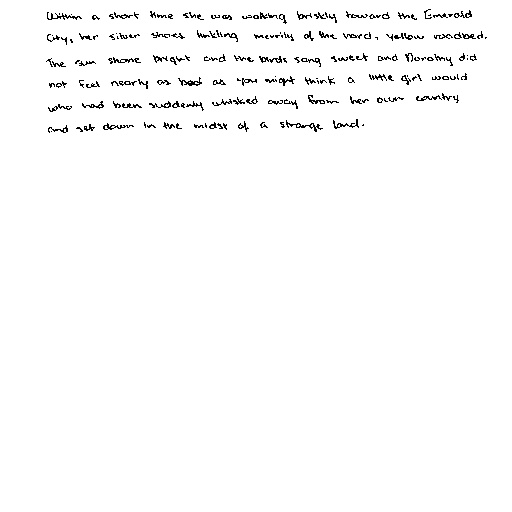 Within a short time she was walking briskly toward the Emerald
City, her silver shoes tinkling merrily of the hard, yellow roadbed.
The sun shone bright and the birds sang sweet and Dorothy did
not feel nearly as bad as you might think a little girl would
who had been suddenly whisked away from her own country
and set down in the midst of a strange land.